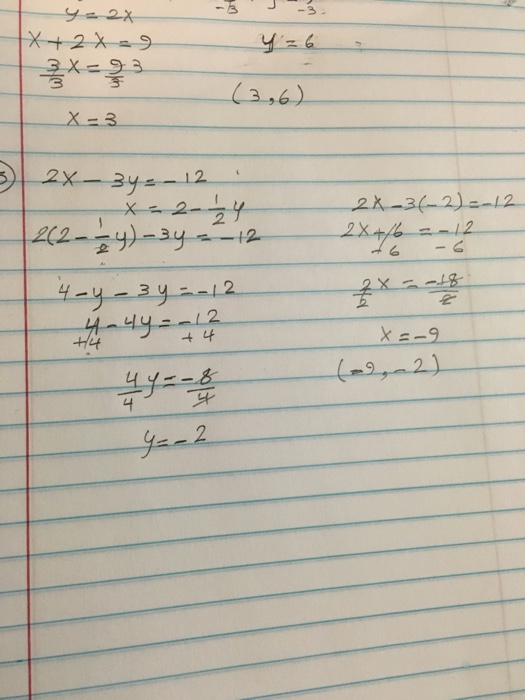 y = 2x
x + 2x = 9
3/3 x = 9/3 3
x = 3
-3
-3.
y = 6
(3,6)
2x - 3y = -12
x = 2 - 1/2 y
2(2 - 1/2 y) - 3y = -12
4 - y - 3y = -12
4 - 4y = -12
+4 +4
4/4 y = -8/4
y = -2
2x - 3(-2) = -12
2x + 6 = -12
-6 -6
2/2 x = -18/2
x = -9
(-9, -2)